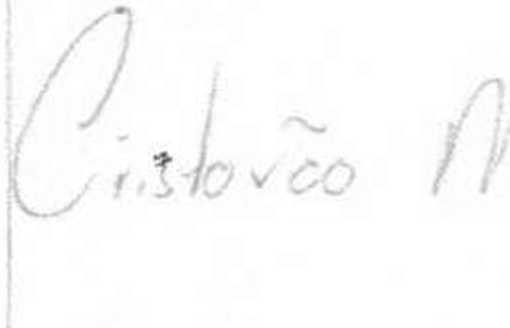 Cristovão M